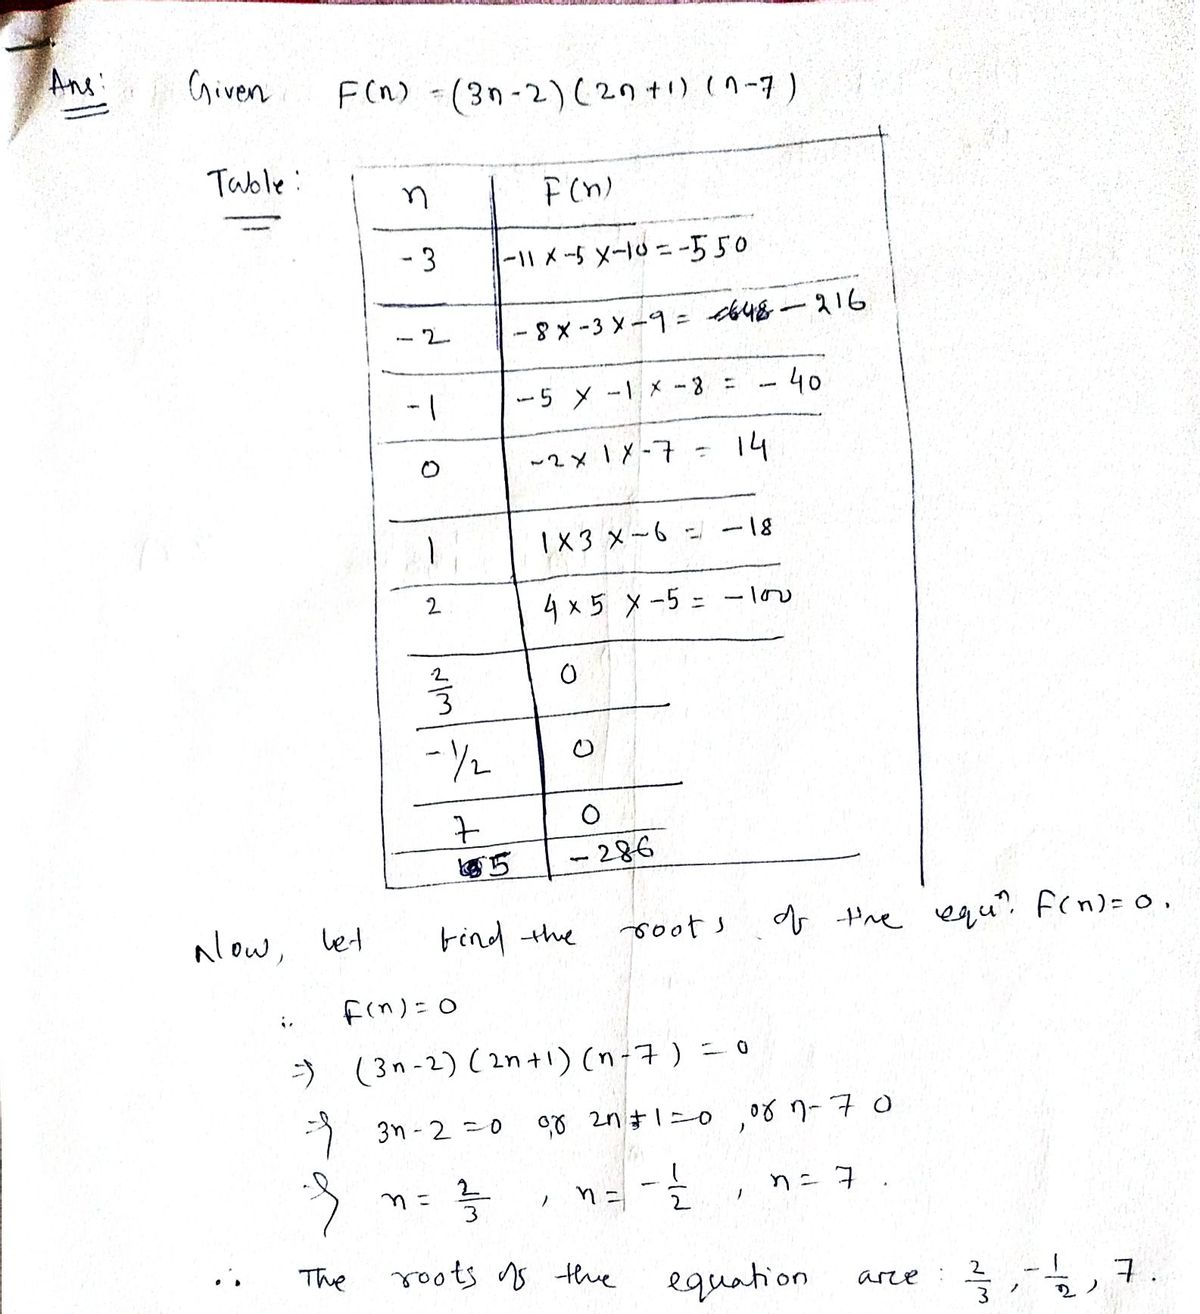 Ans: Given F(n) = (3n-2)(2n+1)(n-7)
Table:
n F(n)
-3 -11 × -5 × -10 = -550
-2 -8 × -3 × -9 = -216
-1 -5 × -1 × -8 = -40
0 -2 × 1 × -7 = 14
1 1 × 3 × -6 = -18
2 4 × 5 × -5 = -100
2/3 0
-1/2 0
7 0
5 -286
Now, let find the roots of the equⁿ. F(n)=0.
∴ F(n)=0
⇒ (3n-2)(2n+1)(n-7) = 0
⇒ 3n-2=0 or 2n+1=0, or n-7 0
⇒ n = 2/3, n = -1/2, n = 7.
∴ The roots of the equation are: 2/3, -1/2, 7.